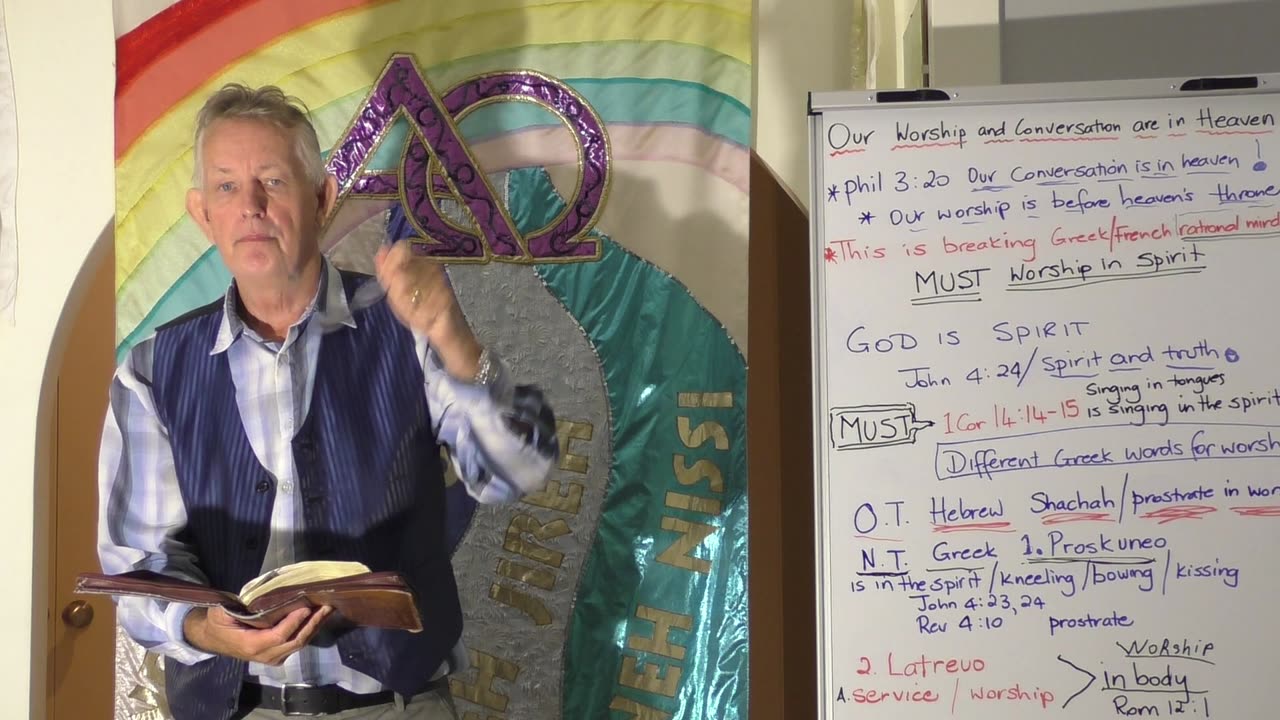 ΑΩ
JIREH
H NISSI
Our Worship and Conversation are in Heaven
* phil 3:20 Our Conversation is in heaven !
* Our worship is before heaven's throne
* This is breaking Greek/French rational mind
MUST Worship in Spirit
GOD IS SPIRIT
John 4:24/ Spirit and truth.
MUST 1 Cor 14:14-15 Singing in tongues
is singing in the spirit
Different Greek words for worsh
O.T. Hebrew Shachah / prostrate in wor
N.T. Greek 1. Proskuneo
is in the spirit / kneeling / bowing / kissing
John 4:23,24
Rev 4:10 prostrate
2. Latreuo
A. service / worship
Worship
in body
Rom 12:1